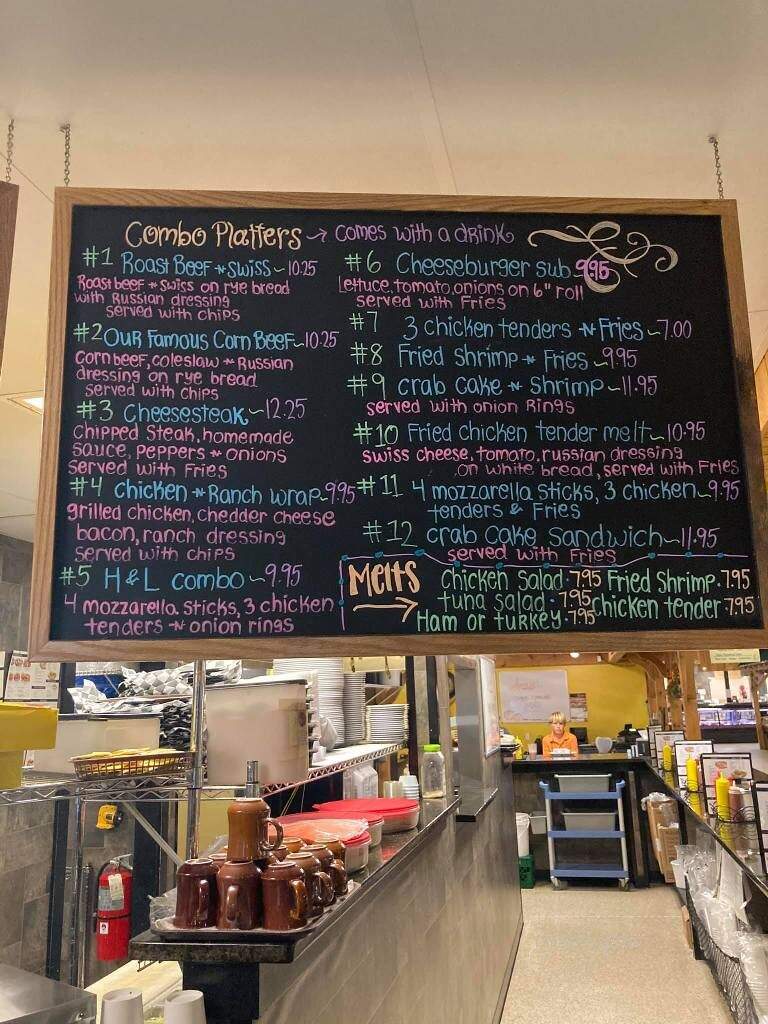 Combo Platters → comes with a drink
#1 Roast Beef & Swiss ~ 10.25
Roast beef & swiss on rye bread
with Russian dressing
served with chips
#2 Our Famous Corn Beef ~ 10.25
corn beef, coleslaw & Russian
dressing on rye bread
served with chips
#3 Cheesesteak ~ 12.25
chipped steak, homemade
sauce, peppers & onions
served with Fries
#4 chicken & Ranch wrap ~ 9.95
grilled chicken, chedder cheese
bacon, ranch dressing
served with chips
#5 H&L combo ~ 9.95
4 mozzarella sticks, 3 chicken
tenders & onion rings
#6 Cheeseburger sub 9.95
Lettuce, tomato, onions on 6" roll
served with Fries
#7 3 chicken tenders & Fries ~ 7.00
#8 Fried shrimp & Fries ~ 9.95
#9 crab cake & shrimp ~ 11.95
served with onion Rings
#10 Fried chicken tender melt ~ 10.95
swiss cheese, tomato, russian dressing
on white bread, served with Fries
#11 4 mozzarella sticks, 3 chicken ~ 9.95
tenders & Fries
#12 crab cake sandwich ~ 11.95
served with Fries
Melts →
chicken salad · 7.95 Fried shrimp · 7.95
tuna salad · 7.95 chicken tender · 7.95
Ham or turkey · 7.95